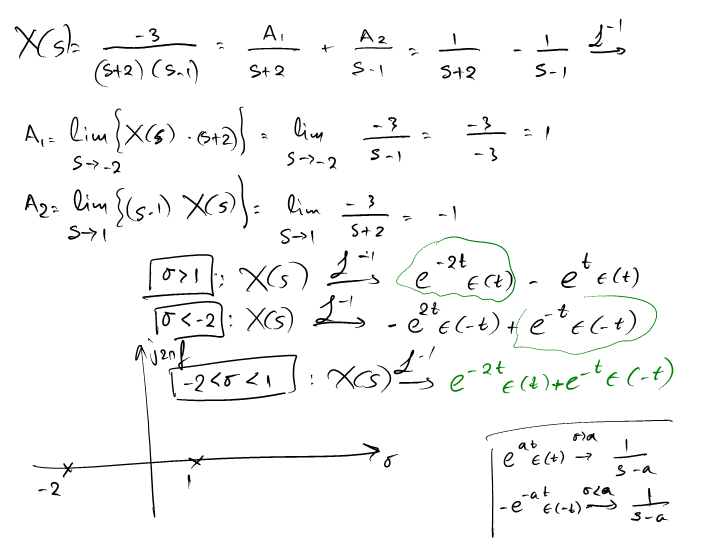 X(s) = -3 / ((s+2)(s-1)) = A₁ / (s+2) + A₂ / (s-1) = 1 / (s+2) - 1 / (s-1) ℒ⁻¹→
A₁ = lim_{s→-2} {X(s) · (s+2)} = lim_{s→-2} -3 / (s-1) = -3 / -3 = 1
A₂ = lim_{s→1} {(s-1) X(s)} = lim_{s→1} -3 / (s+2) = -1
σ>1 : X(s) ℒ⁻¹→ e^{-2t} ϵ(t) - e^{t} ϵ(t)
σ<-2 : X(s) ℒ⁻¹→ - e^{2t} ϵ(-t) + e^{-t} ϵ(-t)
j2πf
-2<σ<1 : X(s) ℒ⁻¹→ e^{-2t} ϵ(t) + e^{-t} ϵ(-t)
σ
-2 1
e^{at} ϵ(t) σ>a→ 1 / (s-a)
-e^{-at} ϵ(-t) σ<a→ 1 / (s-a)